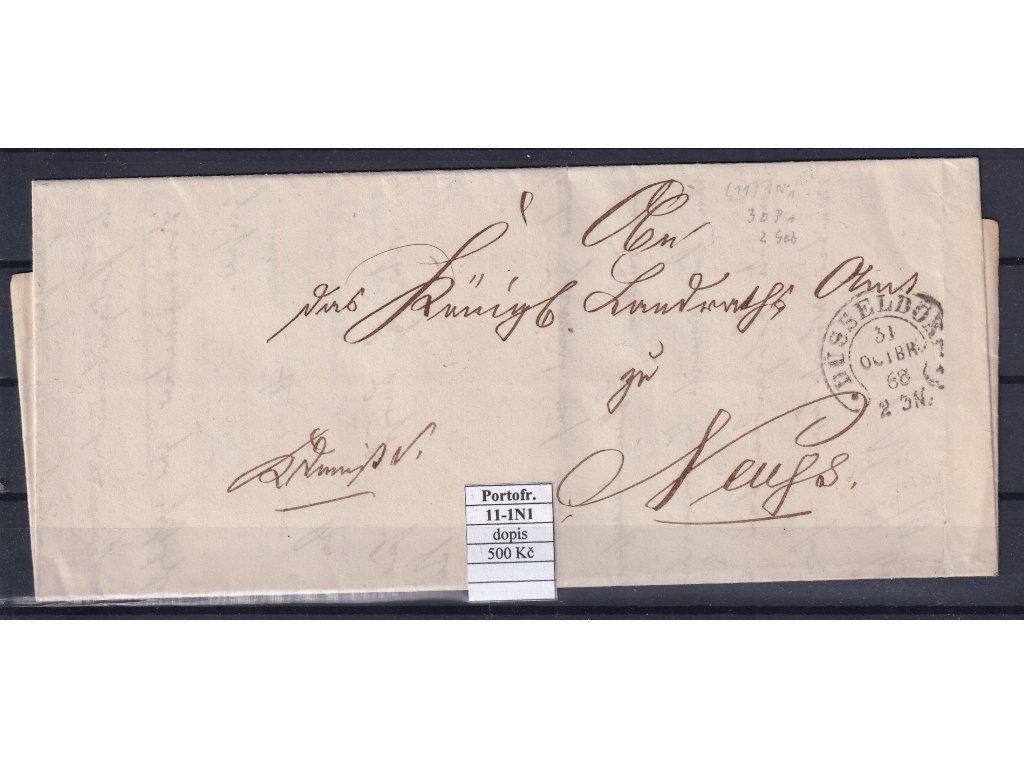 (11) 1N1
2 Geb
An
das Königl Landraths Amt
zu
Neuss.
DÜSSELDORF
31
OCTBR
68
2 3N.
Portofr.
11-1N1
dopis
500 Kč